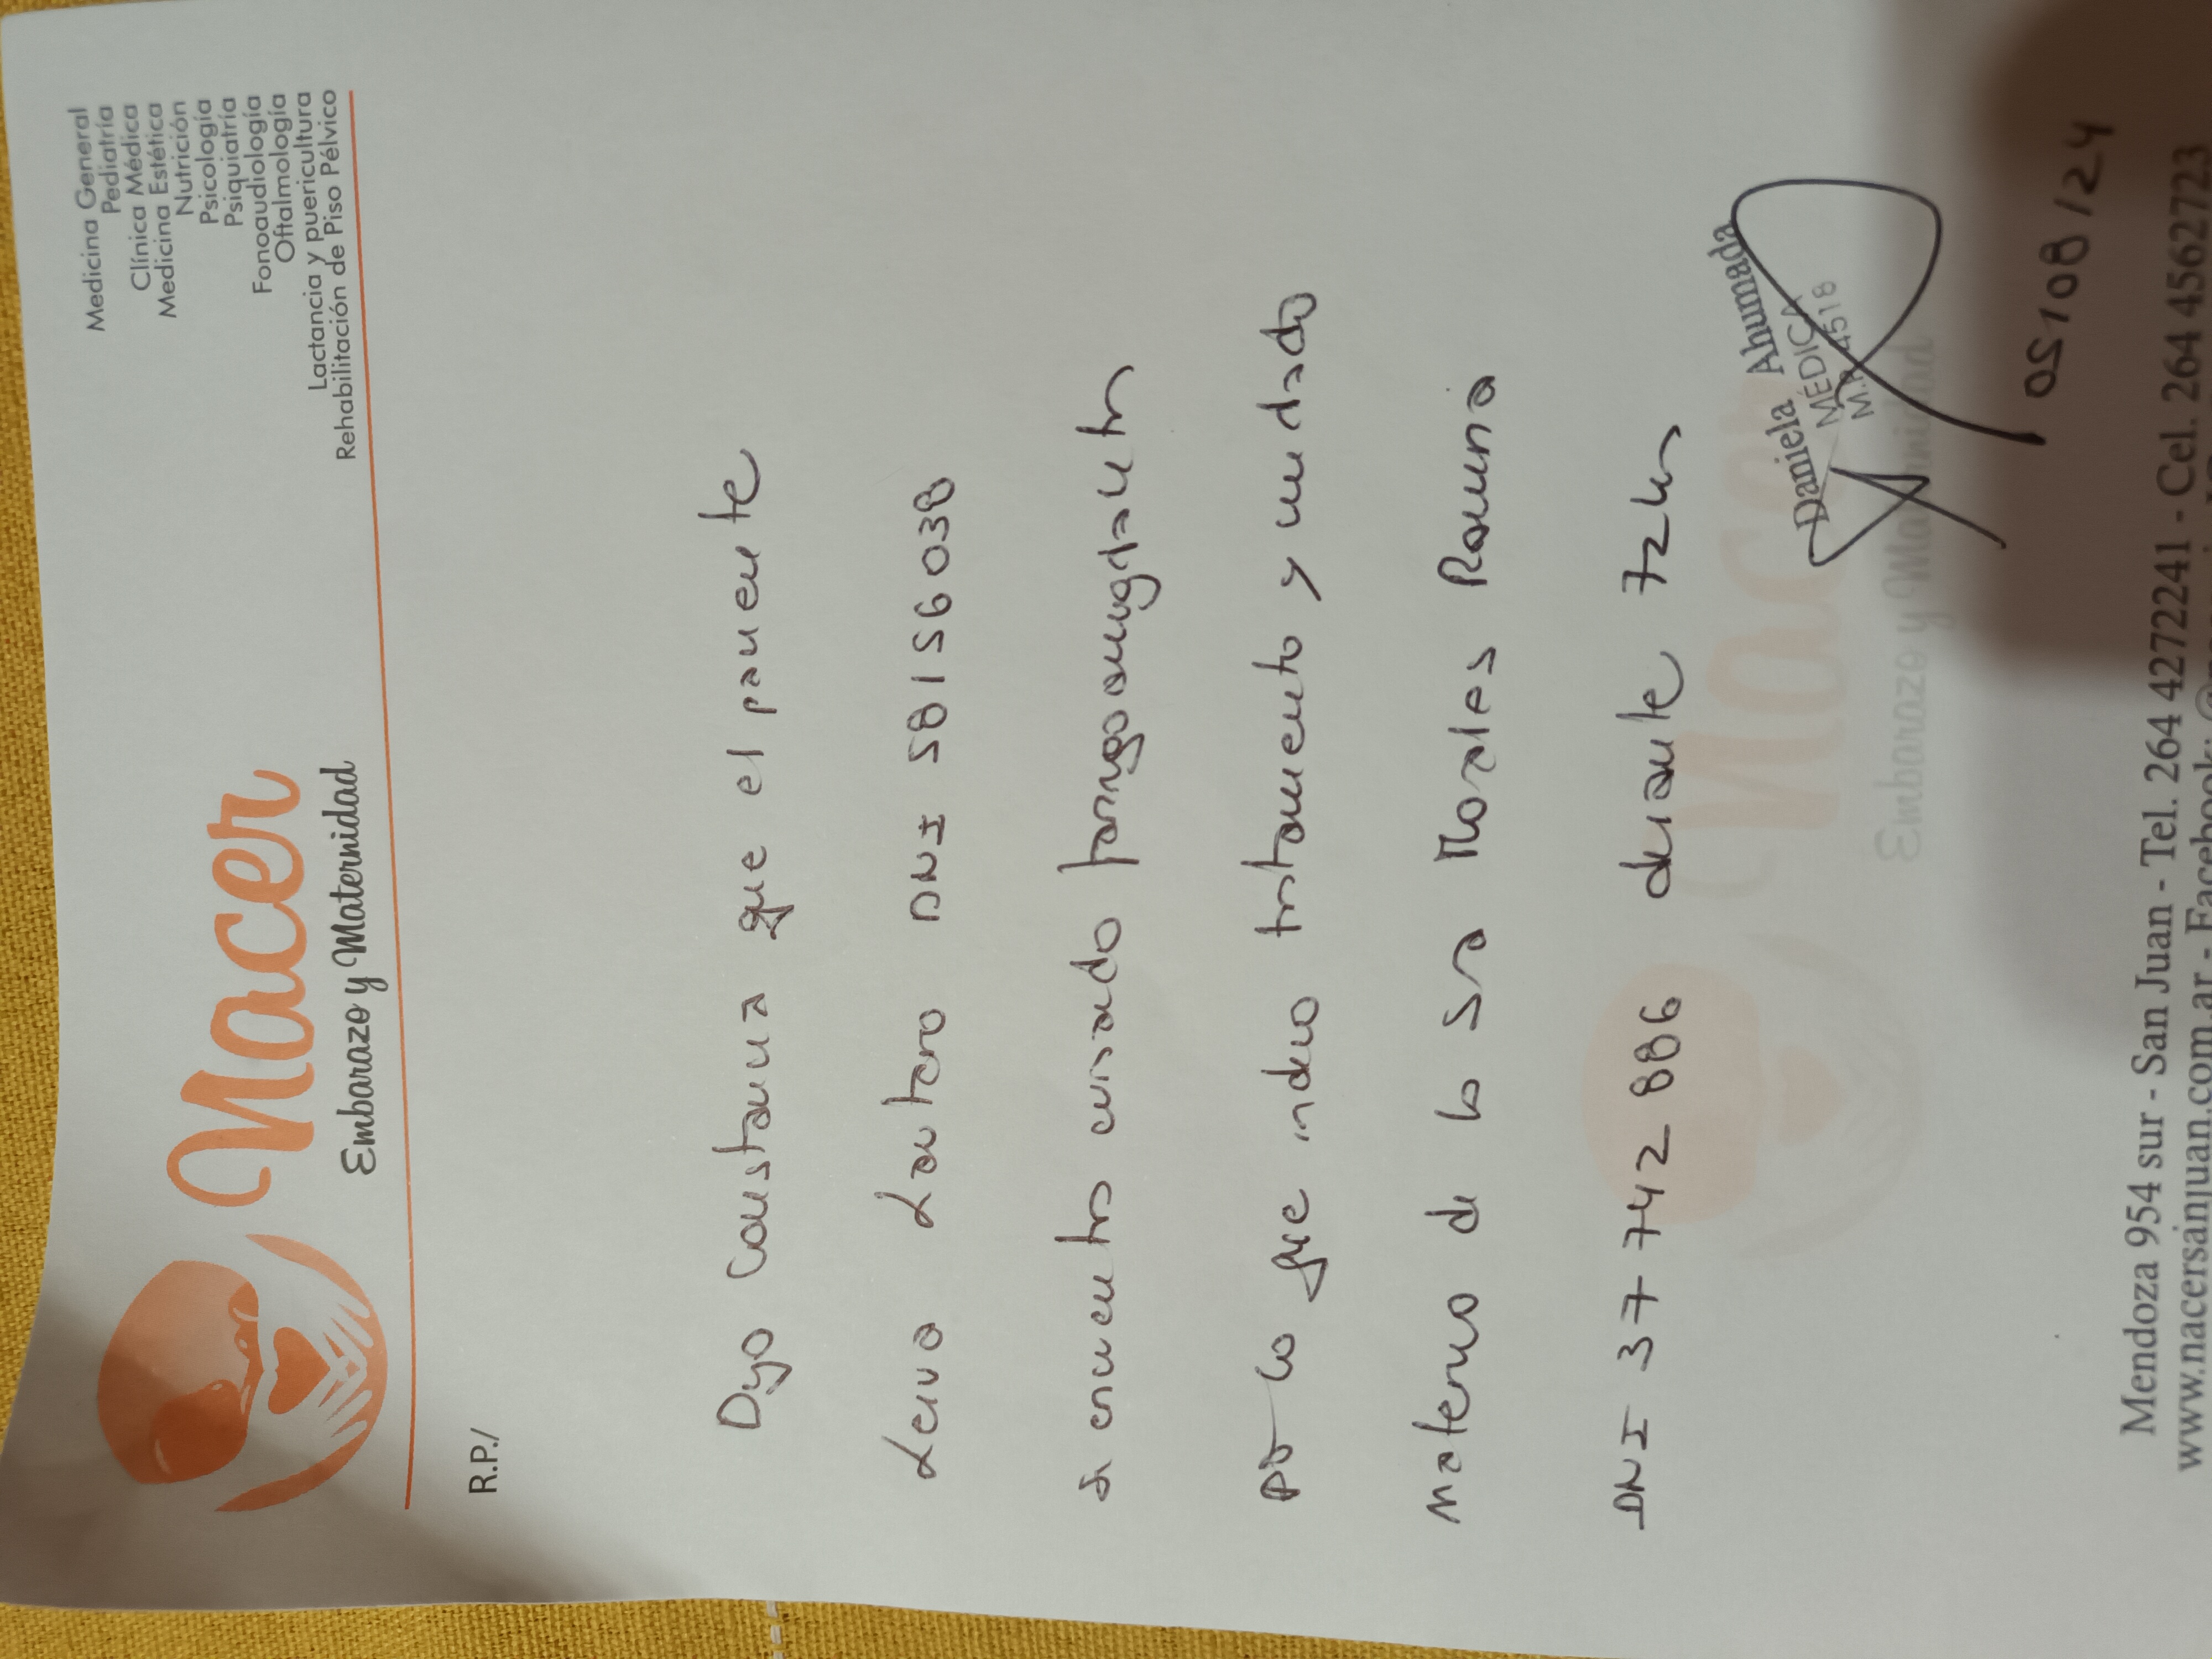 Nacer
Embarazo y Maternidad
Medicina General
Pediatría
Clínica Médica
Medicina Estética
Nutrición
Psicología
Psiquiatría
Fonoaudiología
Oftalmología
Lactancia y puericultura
Rehabilitación de Piso Pélvico
R.P./
Dejo Constancia que el paciente
Leiva Lautaro DNI 58156038
se encuentra cursando faringoamigdalitis
por lo que indico tratamiento y cuidado
Materno de la Sra Morales Romina
DNI 37742886 durante 72hs
Daniela Ahumada
MÉDICA
M.P. 4518
05/08/24
Nacer
Embarazo y Maternidad
Mendoza 954 sur - San Juan - Tel. 264 4272241 - Cel. 264 4562723
www.nacersanjuan.com.ar - Facebook: